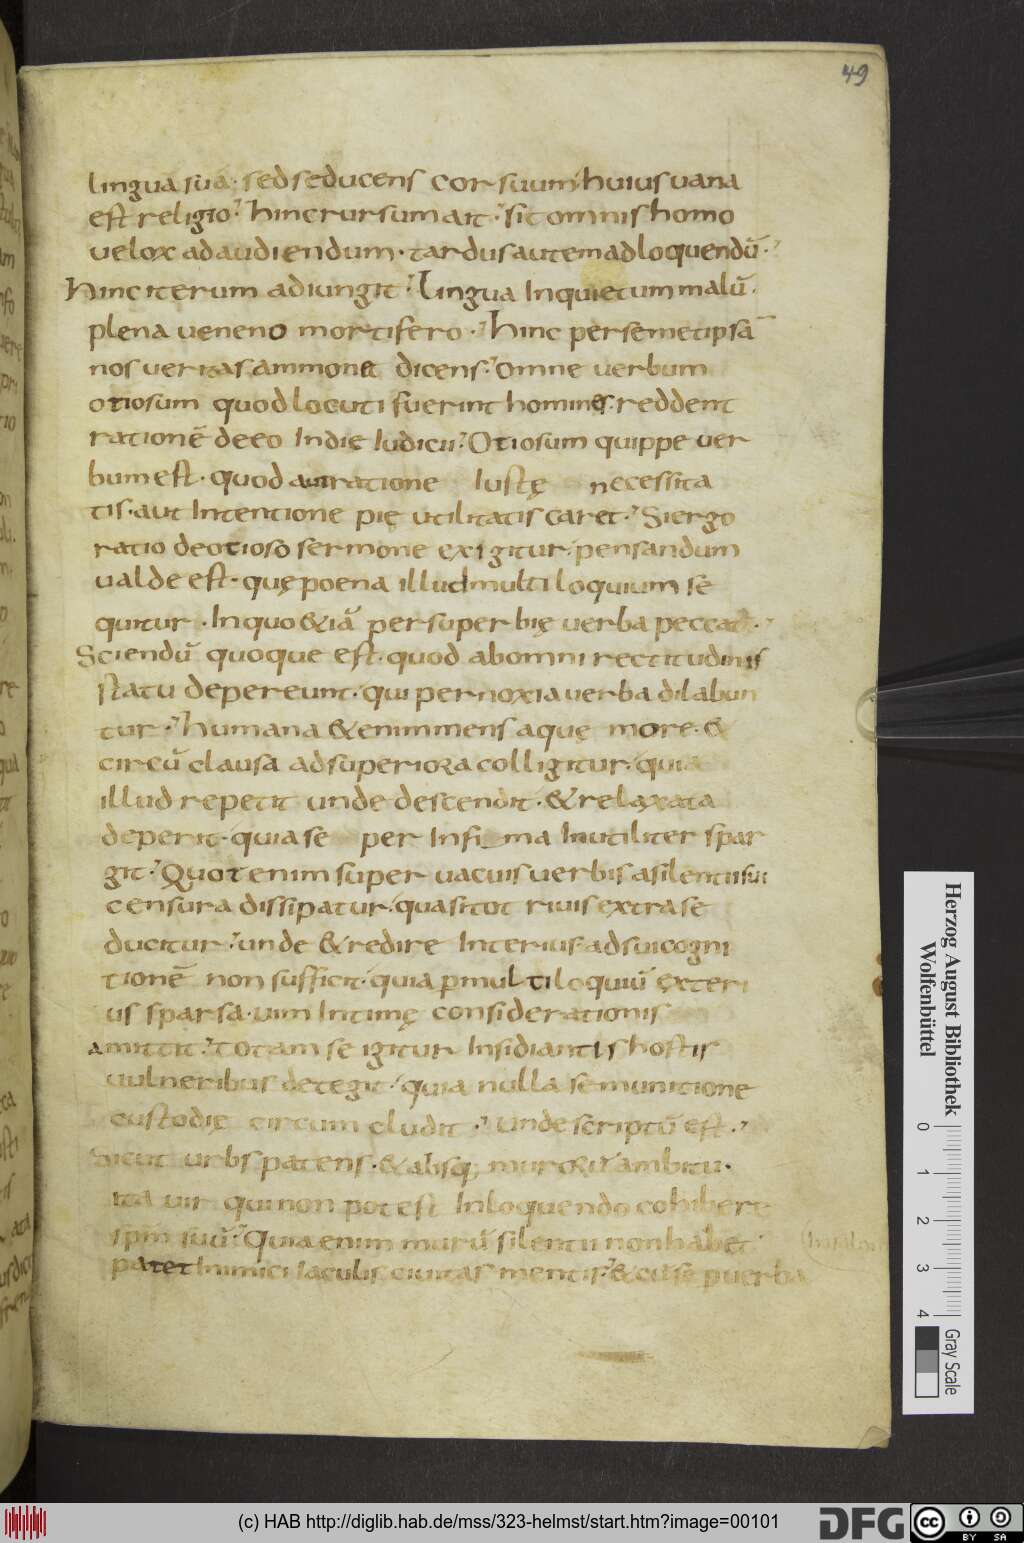 49
lingua sua· sed seducens cor suum huius uana
est religio· hinc rursum ait· sit omnis homo
uelox ad audiendum· tardus autem ad loquendū·
Hinc iterum adiungit· Lingua Inquietum malū·
plena ueneno mortifero· hinc per semetipsā
nos ueritas ammonet dicens· Omne uerbum
otiosum quod locuti fuerint homines· reddent
rationē de eo In die Iudicii· Otiosum quippe uer
bum est· quod aut ratione Iustę necessita
tis· aut Intentione pię utilitatis caret· Si ergo
ratio de otioso sermone exigitur· pensandum
ualde est· quę poena illud multiloquium se
quitur· In quo &iā per superbię uerba peccat·
Sciendū quoque est· quod ab omni rectitudinis
statu depereunt· qui per noxia uerba dilabun
tur· humana &enim mens aquę more· &
circū clausa ad superiora colligitur· quia
illud repetit unde descendit· & relaxata
deperit· quia se per Infima Inutiliter spar
git· Quot enim superuacuis uerbis a silentii sui
censura dissipatur· quasi tot riuis extra se
ducitur· unde & redire Interius ad sui cogni
tionē non sufficit· quia p multiloquiū exteri
us sparsa· uim Intimę considerationis
amittit· totam se igitur Insidiantis hostis
uulneribus detegit· quia nulla se munitione
custodię circum cludit· unde scriptū est·
Sicut urbs patens· & absq; murorū ambitu·
ita uir qui non potest In loquendo cohibere
spm suū· Quia enim murū silentii non habet·
patet Inimici Iaculis ciuitas mentis· & cū se p uerba
Herzog August Bibliothek
Wolfenbüttel
0 1 2 3 4
Gray Scale
(c) HAB http://diglib.hab.de/mss/323-helmst/start.htm?image=00101
DFG
cc BY SA